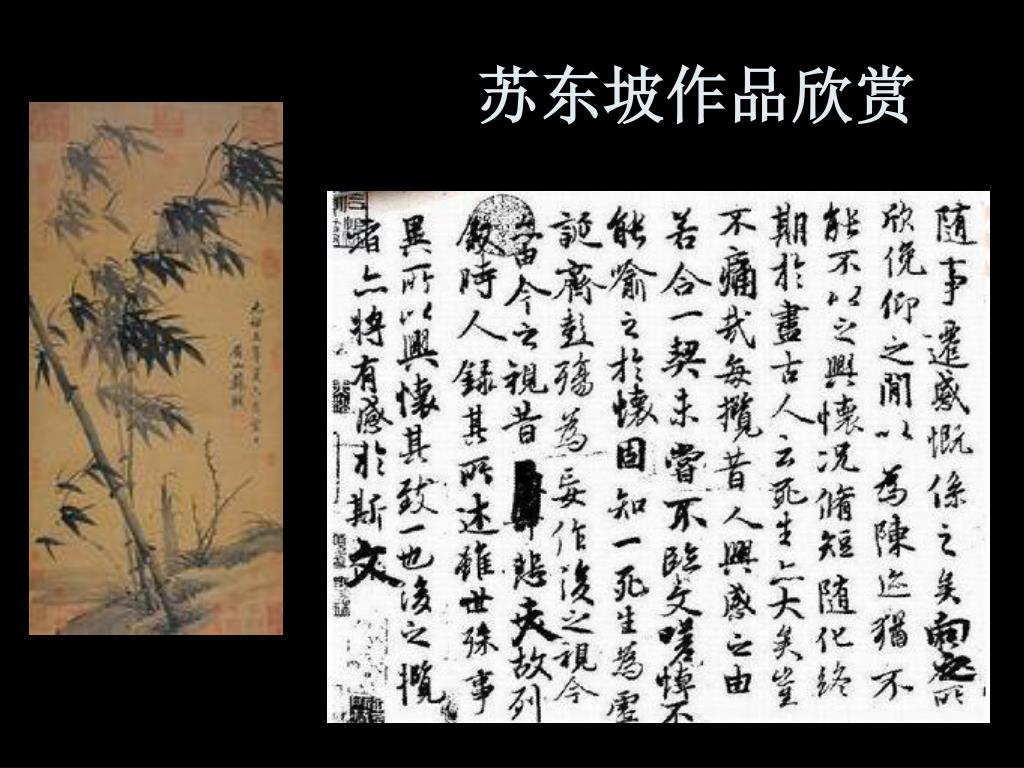 苏东坡作品欣赏
隨事遷感慨係之矣向之所
欣俛仰之閒以為陳迹猶不
能不以之興懷況脩短隨化終
期於盡古人云死生亦大矣豈
不痛哉每攬昔人興感之由
若合一契未嘗不臨文嗟悼不
能喻之於懷固知一死生為虛
誕齊彭殤為妄作後之視今
亦由今之視昔悲夫故列
敘時人錄其所述雖世殊事
異所以興懷其致一也後之攬
者亦將有感於斯文